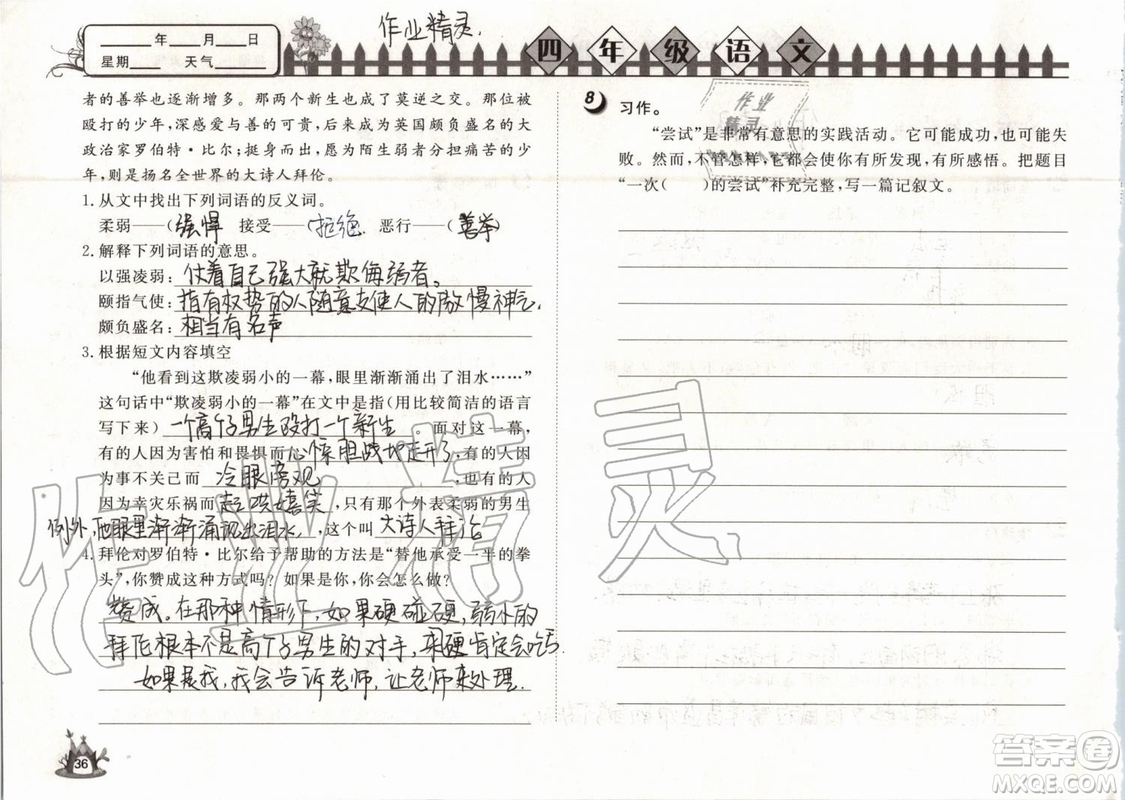 ______年____月____日
星期____ 天气________
作业精灵.
四年级语文
者的善举也逐渐增多。那两个新生也成了莫逆之交。那位被
殴打的少年，深感爱与善的可贵，后来成为英国颇负盛名的大
政治家罗伯特·比尔；挺身而出，愿为陌生弱者分担痛苦的少
年，则是扬名全世界的大诗人拜伦。
1. 从文中找出下列词语的反义词。
柔弱——(强悍 接受——(拒绝 恶行——(善举)
2. 解释下列词语的意思。
以强凌弱：仗着自己强大就欺侮弱者。
颐指气使：指有权势的人随意支使人的傲慢神气
颇负盛名：相当有名声
3. 根据短文内容填空
“他看到这欺凌弱小的一幕，眼里渐渐涌出了泪水……”
这句话中“欺凌弱小的一幕”在文中是指(用比较简洁的语言
写下来)一个高个子男生殴打一个新生 面对这一幕，
有的人因为害怕和畏惧而心惊胆战地走开了，有的人因
为事不关己而 冷眼旁观 ，也有的人
因为幸灾乐祸而起哄嬉笑，只有那个外表柔弱的男生
例外，他眼里渐渐涌现出泪水，这个叫大诗人拜伦
4. 拜伦对罗伯特·比尔给予帮助的方法是“替他承受一半的拳
头”，你赞成这种方式吗？如果是你，你会怎么做？
赞成。在那种情形下，如果硬碰硬，弱小的
拜伦根本不是高个子男生的对手，来硬肯定会吃亏
如果是我，我会告诉老师，让老师来处理.
36
8 习作。
作业
精灵
“尝试”是非常有意思的实践活动。它可能成功，也可能失
败。然而，不管怎样，它都会使你有所发现，有所感悟。把题目
“一次(　　)的尝试”补充完整，写一篇记叙文。
作业精灵
答案卷
MXQE.COM